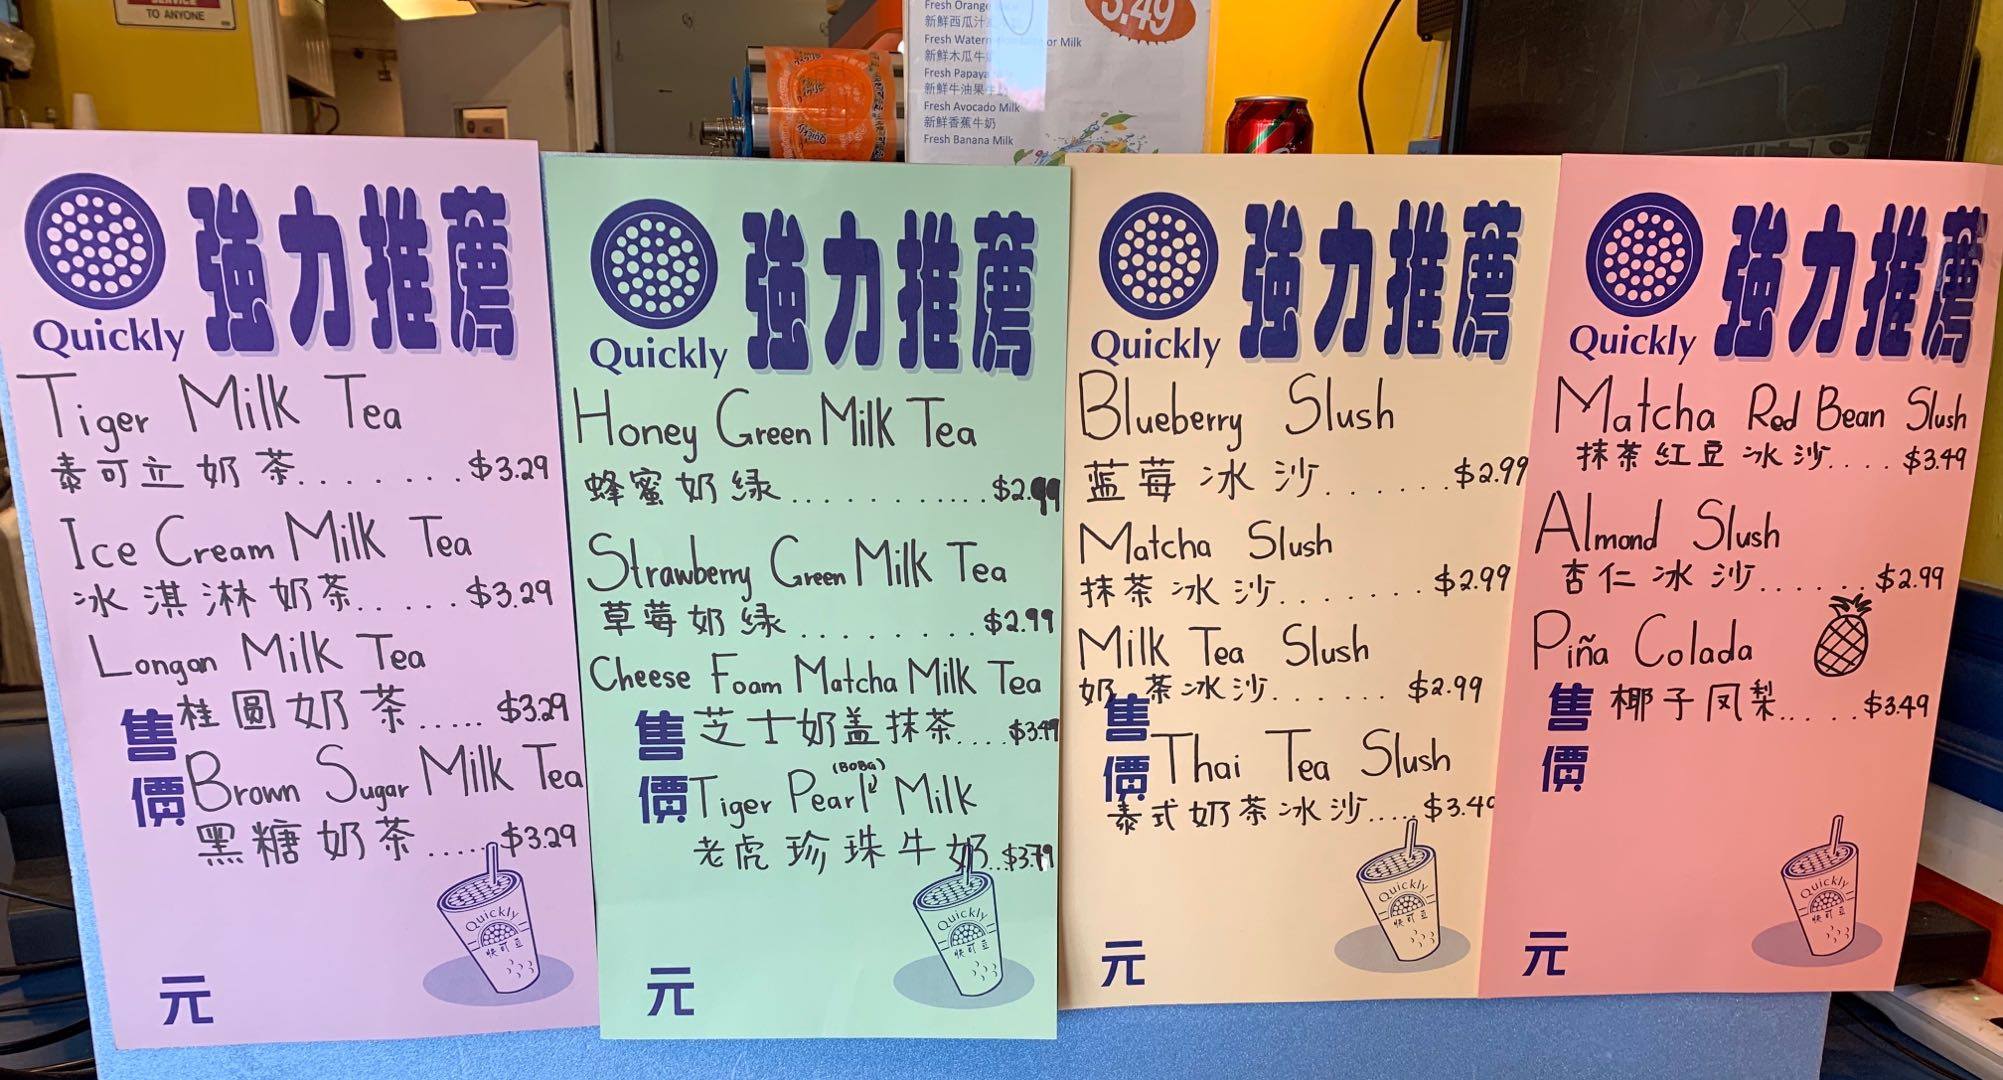 SERVICE
TO ANYONE
Fresh Orange
新鮮西瓜汁
Fresh Water or Milk
新鮮木瓜牛
Fresh Papaya
新鮮牛油果牛
Fresh Avocado Milk
新鮮香蕉牛奶
Fresh Banana Milk
3.49
Quickly
強力推薦
Tiger Milk Tea
泰可立奶茶........$3.29
Ice Cream Milk Tea
冰淇淋奶茶.....$3.29
Longan Milk Tea
桂圆奶茶.....$3.29
Brown Sugar Milk Tea
黑糖奶茶.....$3.29
售價
元
Quickly
快可立
Quickly
強力推薦
Honey Green Milk Tea
蜂蜜奶绿............$2.99
Strawberry Green Milk Tea
草莓奶绿.........$2.99
Cheese Foam Matcha Milk Tea
芝士奶盖抹茶....$3.49
(BOBA)
Tiger Pearl Milk
老虎珍珠牛奶..$3.79
售價
元
Quickly
快可立
Quickly
強力推薦
Blueberry Slush
蓝莓冰沙......$2.99
Matcha Slush
抹茶冰沙.......$2.99
Milk Tea Slush
奶茶冰沙.......$2.99
Thai Tea Slush
泰式奶茶冰沙....$3.49
售價
元
Quickly
快可立
Quickly
強力推薦
Matcha Red Bean Slush
抹茶红豆冰沙....$3.49
Almond Slush
杏仁冰沙.......$2.99
Piña Colada
椰子凤梨.....$3.49
售價
元
Quickly
快可立